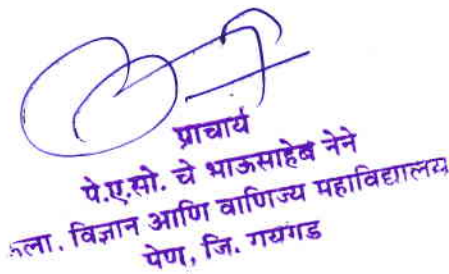 प्राचार्य
पे.ए.सो. चे भाऊसाहेब नेने
कला. विज्ञान आणि वाणिज्य महाविद्यालय
पेण, जि. रायगड